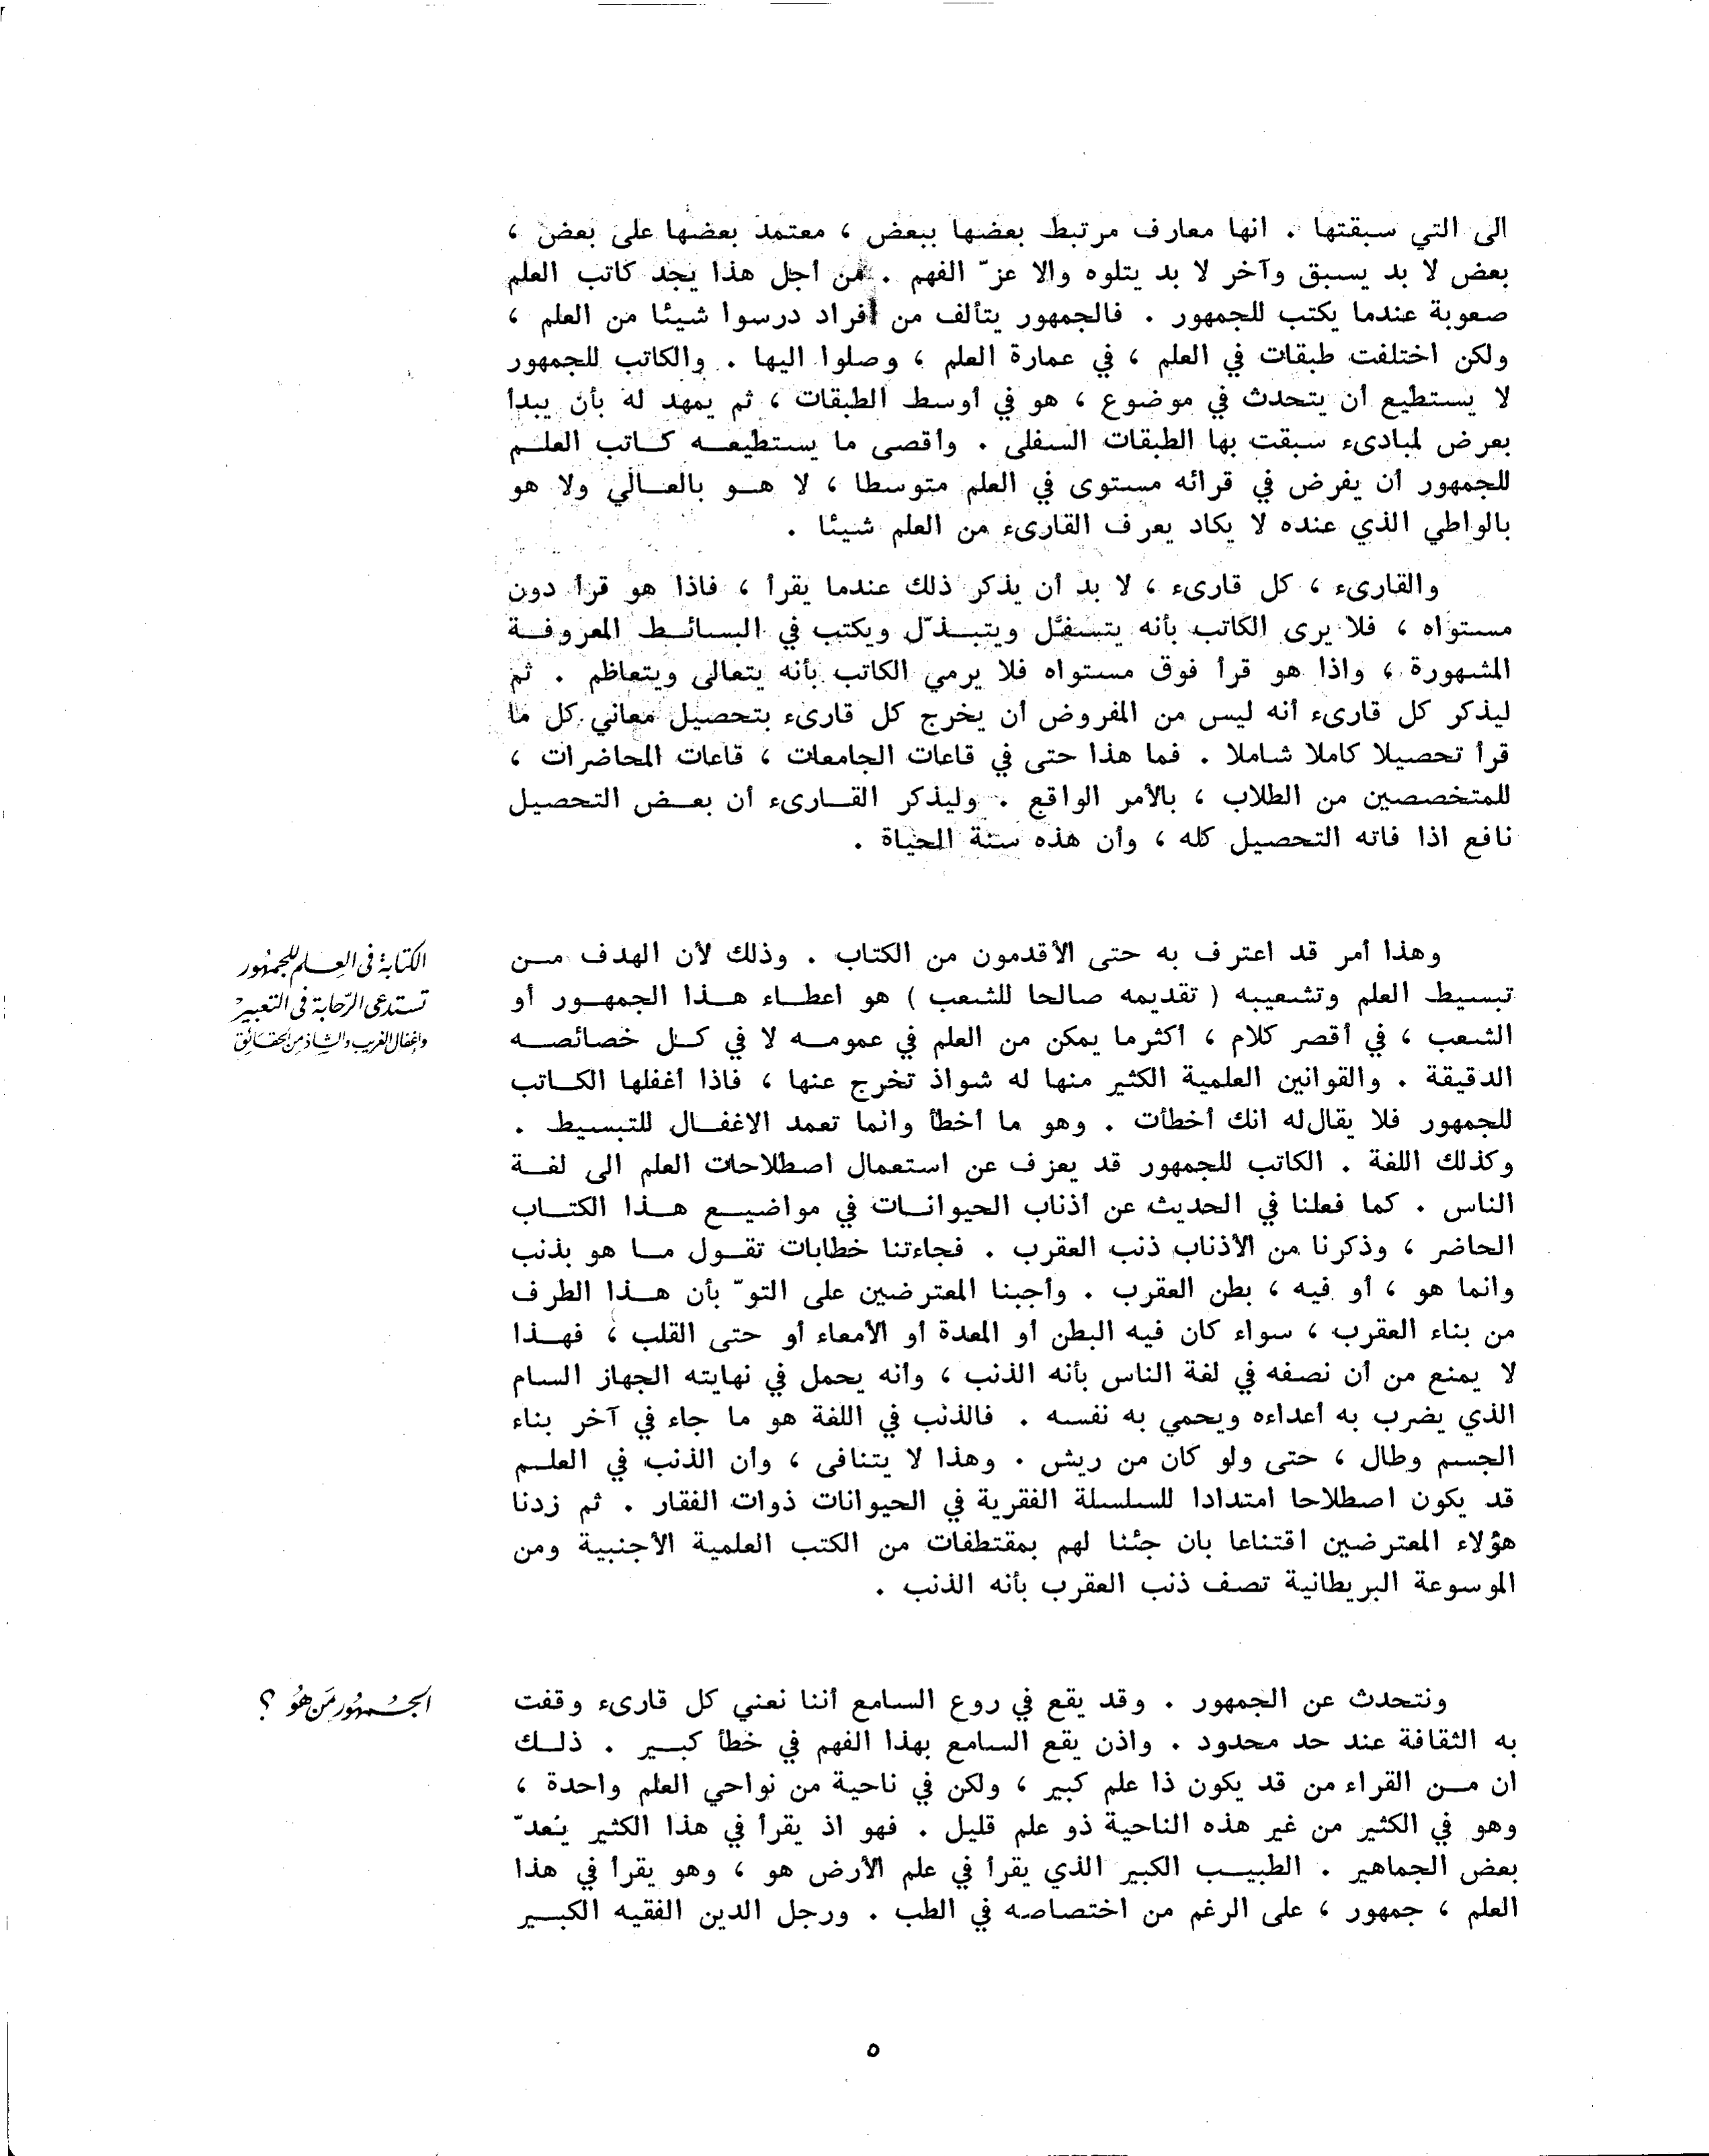 الى التي سبقتها . انها معارف مرتبط بعضها ببعض ، معتمد بعضها على بعض ،
بعض لا بد يسبق وآخر لا بد يتلوه والا عزّ الفهم . من أجل هذا يجد كاتب العلم
صعوبة عندما يكتب للجمهور . فالجمهور يتألف من أفراد درسوا شيئا من العلم ،
ولكن اختلفت طبقات في العلم ، في عمارة العلم ، وصلوا اليها . والكاتب للجمهور
لا يستطيع أن يتحدث في موضوع ، هو في أوسط الطبقات ، ثم يمهد له بأن يبدأ
بعرض لمبادىء سبقت بها الطبقات السفلى . وأقصى ما يستطيعه كاتب العلم
للجمهور أن يفرض في قرائه مستوى في العلم متوسطا ، لا هو بالعالي ولا هو
بالواطي الذي عنده لا يكاد يعرف القارىء من العلم شيئا .
والقارىء ، كل قارىء ، لا بد أن يذكر ذلك عندما يقرأ ، فاذا هو قرأ دون
مستواه ، فلا يرى الكاتب بأنه يتسفّل ويتبذّل ويكتب في البسائط المعروفة
المشهورة ، واذا هو قرأ فوق مستواه فلا يرمي الكاتب بأنه يتعالى ويتعاظم . ثم
ليذكر كل قارىء أنه ليس من المفروض أن يخرج كل قارىء بتحصيل معاني كل ما
قرأ تحصيلا كاملا شاملا . فما هذا حتى في قاعات الجامعات ، قاعات المحاضرات ،
للمتخصصين من الطلاب ، بالأمر الواقع . وليذكر القارىء أن بعض التحصيل
نافع اذا فاته التحصيل كله ، وأن هذه سنة الحياة .
الكتابة في العلم للجمهور
تستدعي الرّحابة في التعبير
وإغفال الغريب والشاذ من الحقائق
وهذا أمر قد اعترف به حتى الأقدمون من الكتاب . وذلك لأن الهدف من
تبسيط العلم وتشعيبه ( تقديمه صالحا للشعب ) هو اعطاء هذا الجمهور أو
الشعب ، في أقصر كلام ، أكثر ما يمكن من العلم في عمومه لا في كل خصائصه
الدقيقة . والقوانين العلمية الكثير منها له شواذ تخرج عنها ، فاذا أغفلها الكاتب
للجمهور فلا يقال له انك أخطأت . وهو ما أخطأ وانما تعمد الاغفال للتبسيط .
وكذلك اللغة . الكاتب للجمهور قد يعزف عن استعمال اصطلاحات العلم الى لغة
الناس . كما فعلنا في الحديث عن أذناب الحيوانات في مواضيع هذا الكتاب
الحاضر ، وذكرنا من الأذناب ذنب العقرب . فجاءتنا خطابات تقول ما هو بذنب
وانما هو ، أو فيه ، بطن العقرب . وأجبنا المعترضين على التوّ بأن هذا الطرف
من بناء العقرب ، سواء كان فيه البطن أو المعدة أو الأمعاء أو حتى القلب ، فهذا
لا يمنع من أن نصفه في لغة الناس بأنه الذنب ، وأنه يحمل في نهايته الجهاز السام
الذي يضرب به أعداءه ويحمي به نفسه . فالذنب في اللغة هو ما جاء في آخر بناء
الجسم وطال ، حتى ولو كان من ريش . وهذا لا يتنافى ، وأن الذنب في العلم
قد يكون اصطلاحا امتدادا للسلسلة الفقرية في الحيوانات ذوات الفقار . ثم زدنا
هؤلاء المعترضين اقتناعا بان جئنا لهم بمقتطفات من الكتب العلمية الأجنبية ومن
الموسوعة البريطانية تصف ذنب العقرب بأنه الذنب .
الجُمهُور مَن هُوَ ؟
ونتحدث عن الجمهور . وقد يقع في روع السامع أننا نعني كل قارىء وقفت
به الثقافة عند حد محدود . واذن يقع السامع بهذا الفهم في خطأ كبير . ذلك
ان من القراء من قد يكون ذا علم كبير ، ولكن في ناحية من نواحي العلم واحدة ،
وهو في الكثير من غير هذه الناحية ذو علم قليل . فهو اذ يقرأ في هذا الكثير يُعدّ
بعض الجماهير . الطبيب الكبير الذي يقرأ في علم الأرض هو ، وهو يقرأ في هذا
العلم ، جمهور ، على الرغم من اختصاصه في الطب . ورجل الدين الفقيه الكبير
٥